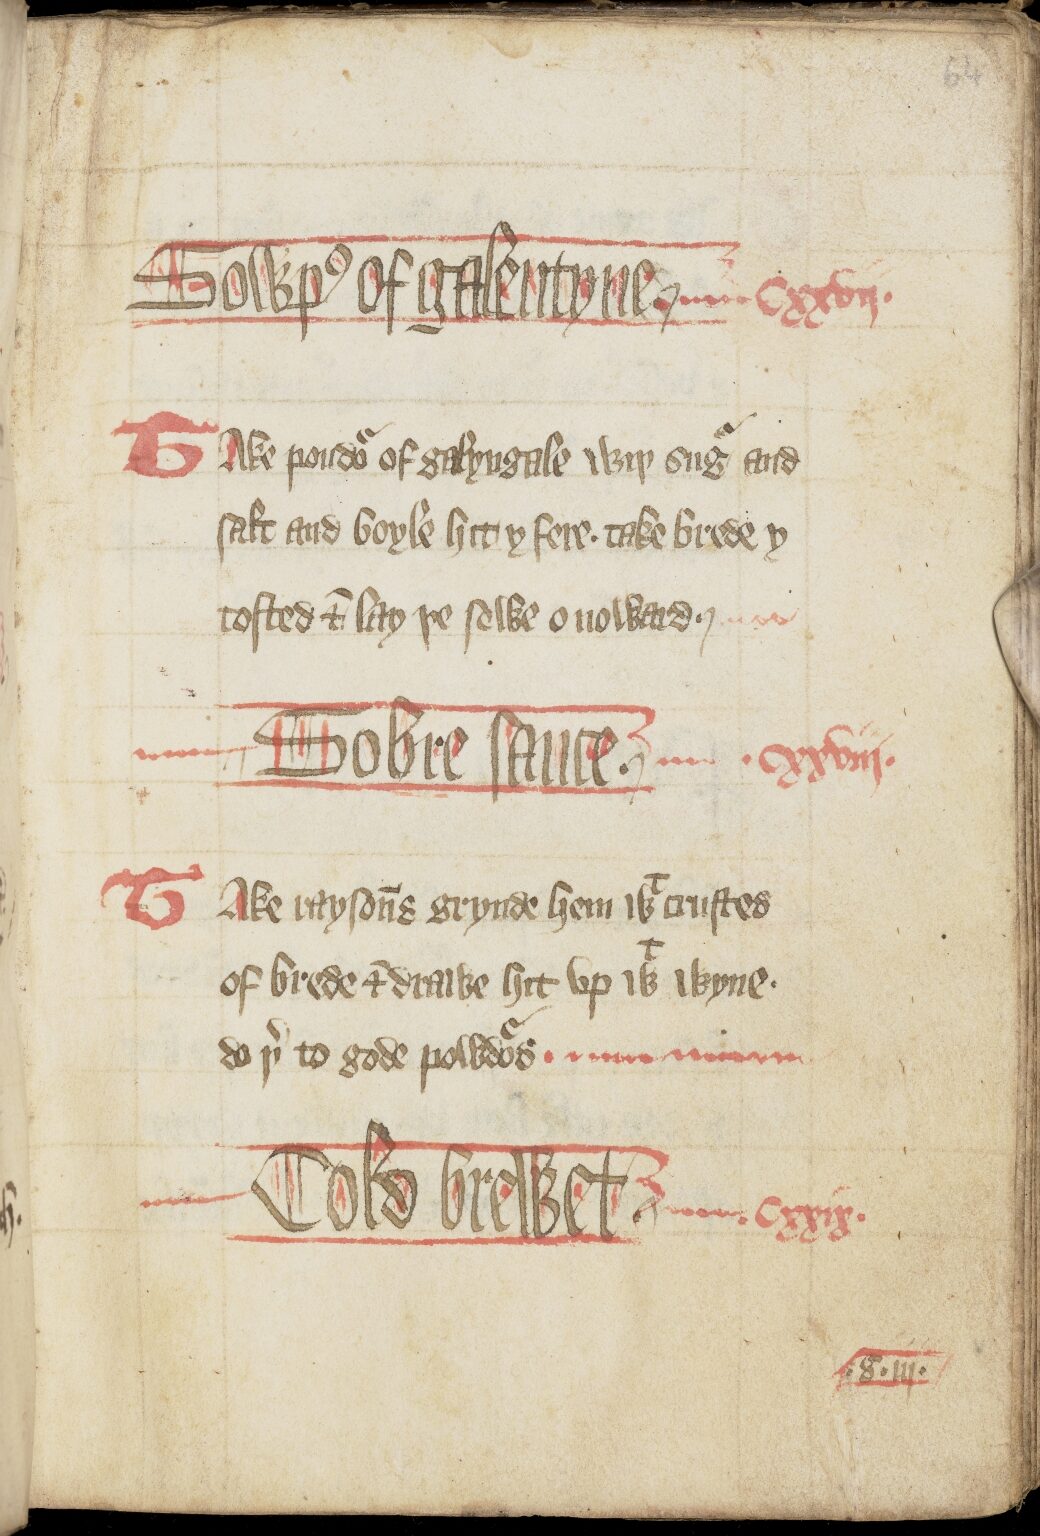 64
Sowpꝰ of galentyne cxxvij.
Take poudoᵃ of galyngale wiþ sugᵃ and
salt and boyle hit y fere. take brede y
tosted ⁊ lay þe sewe onoward.
Sobre sauce. cxxviij.
Take raysoñs grynde hem wᵗ crustes
of brede ⁊ drawe hit vp wᵗ wyne.
do þ͛ to gode powdoᵃs.
Cold brewet cxxix.
.g.iij.